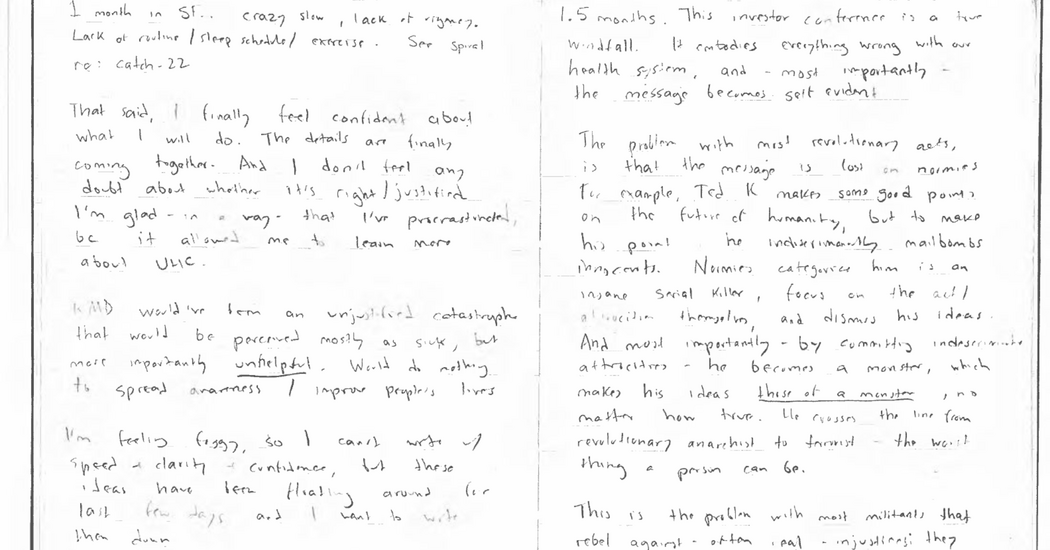 1 month in SF.. crazy slow, lack of urgency.
Lack of routine / sleep schedule / exercise. See spiral
re: catch-22
That said, I finally feel confident about
what I will do. The details are finally
coming together. And I don't feel any
doubt about whether it's right/justified.
I'm glad - in a way - that I've procrastinated,
bc it allowed me to learn more
about UHC.
would've been an unjustified catastrophe
that would be perceived mostly as sick, but
more importantly unhelpful. Would do nothing
to spread awareness / improve people's lives
I'm feeling foggy, so I can't write w/
speed + clarity + confidence, but these
ideas have been floating around for
last few days and I want to write
them down
1.5 months. This investor conference is a true
windfall. It embodies everything wrong with our
health system, and - most importantly -
the message becomes self evident
The problem with most revolutionary acts,
is that the message is lost on normies
For example, Ted K makes some good points
on the future of humanity, but to make
his point he indiscriminantly mailbombs
innocents. Normies categorize him is an
insane serial killer, focus on the act/
atrocities themselves, and dismiss his ideas.
And most importantly - by committing indiscriminate
attrocities - he becomes a monster, which
makes his ideas those of a monster, no
matter how true. He crosses the line from
revolutionary anarchist to terrorist - the worst
thing a person can be.
This is the problem with most militants that
rebel against - often real - injustices: they